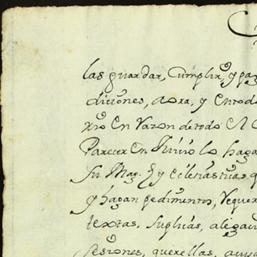 las guardar, Cumplir, y pa
diciones, aora, y entodo
xño En Razon detodo el C
Parecer En Juicio lo haga
Su Mag.d y Eclesiasticas, q
y hagan pedimentos, Reque
textas, suplicas, alegaci
sesiones, querellas, acus